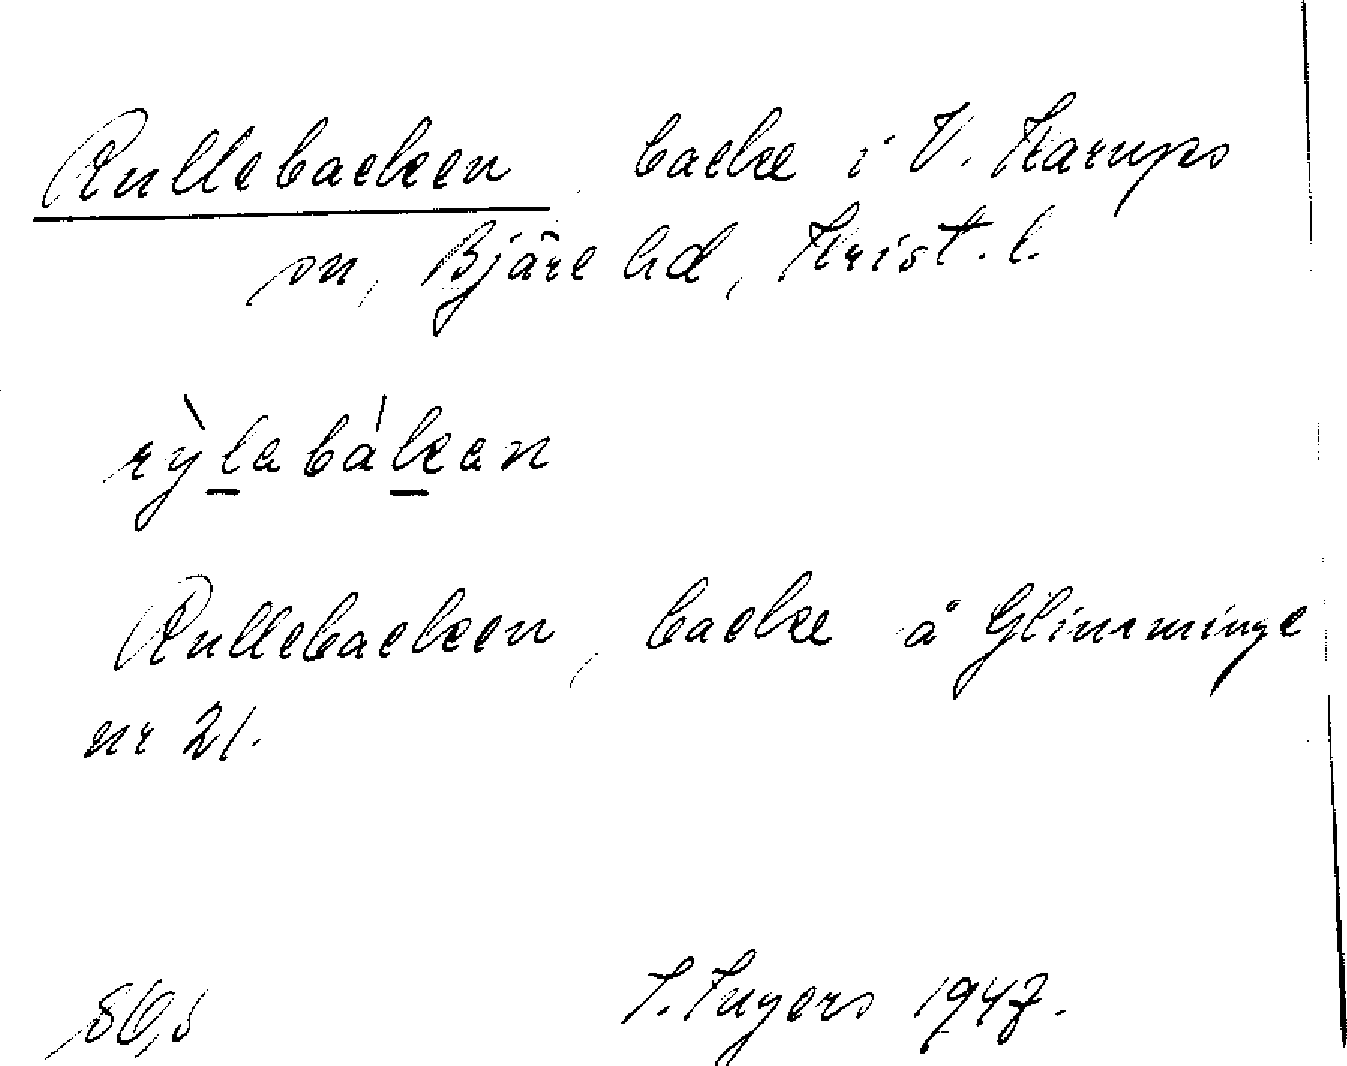 Rullebacken, backe i V. Karups
sn, Bjäre hd, Krist. l.
rỳlabákan
Rullebacken, backe å Glimminge
nr 21.
I. Ingers 1947.